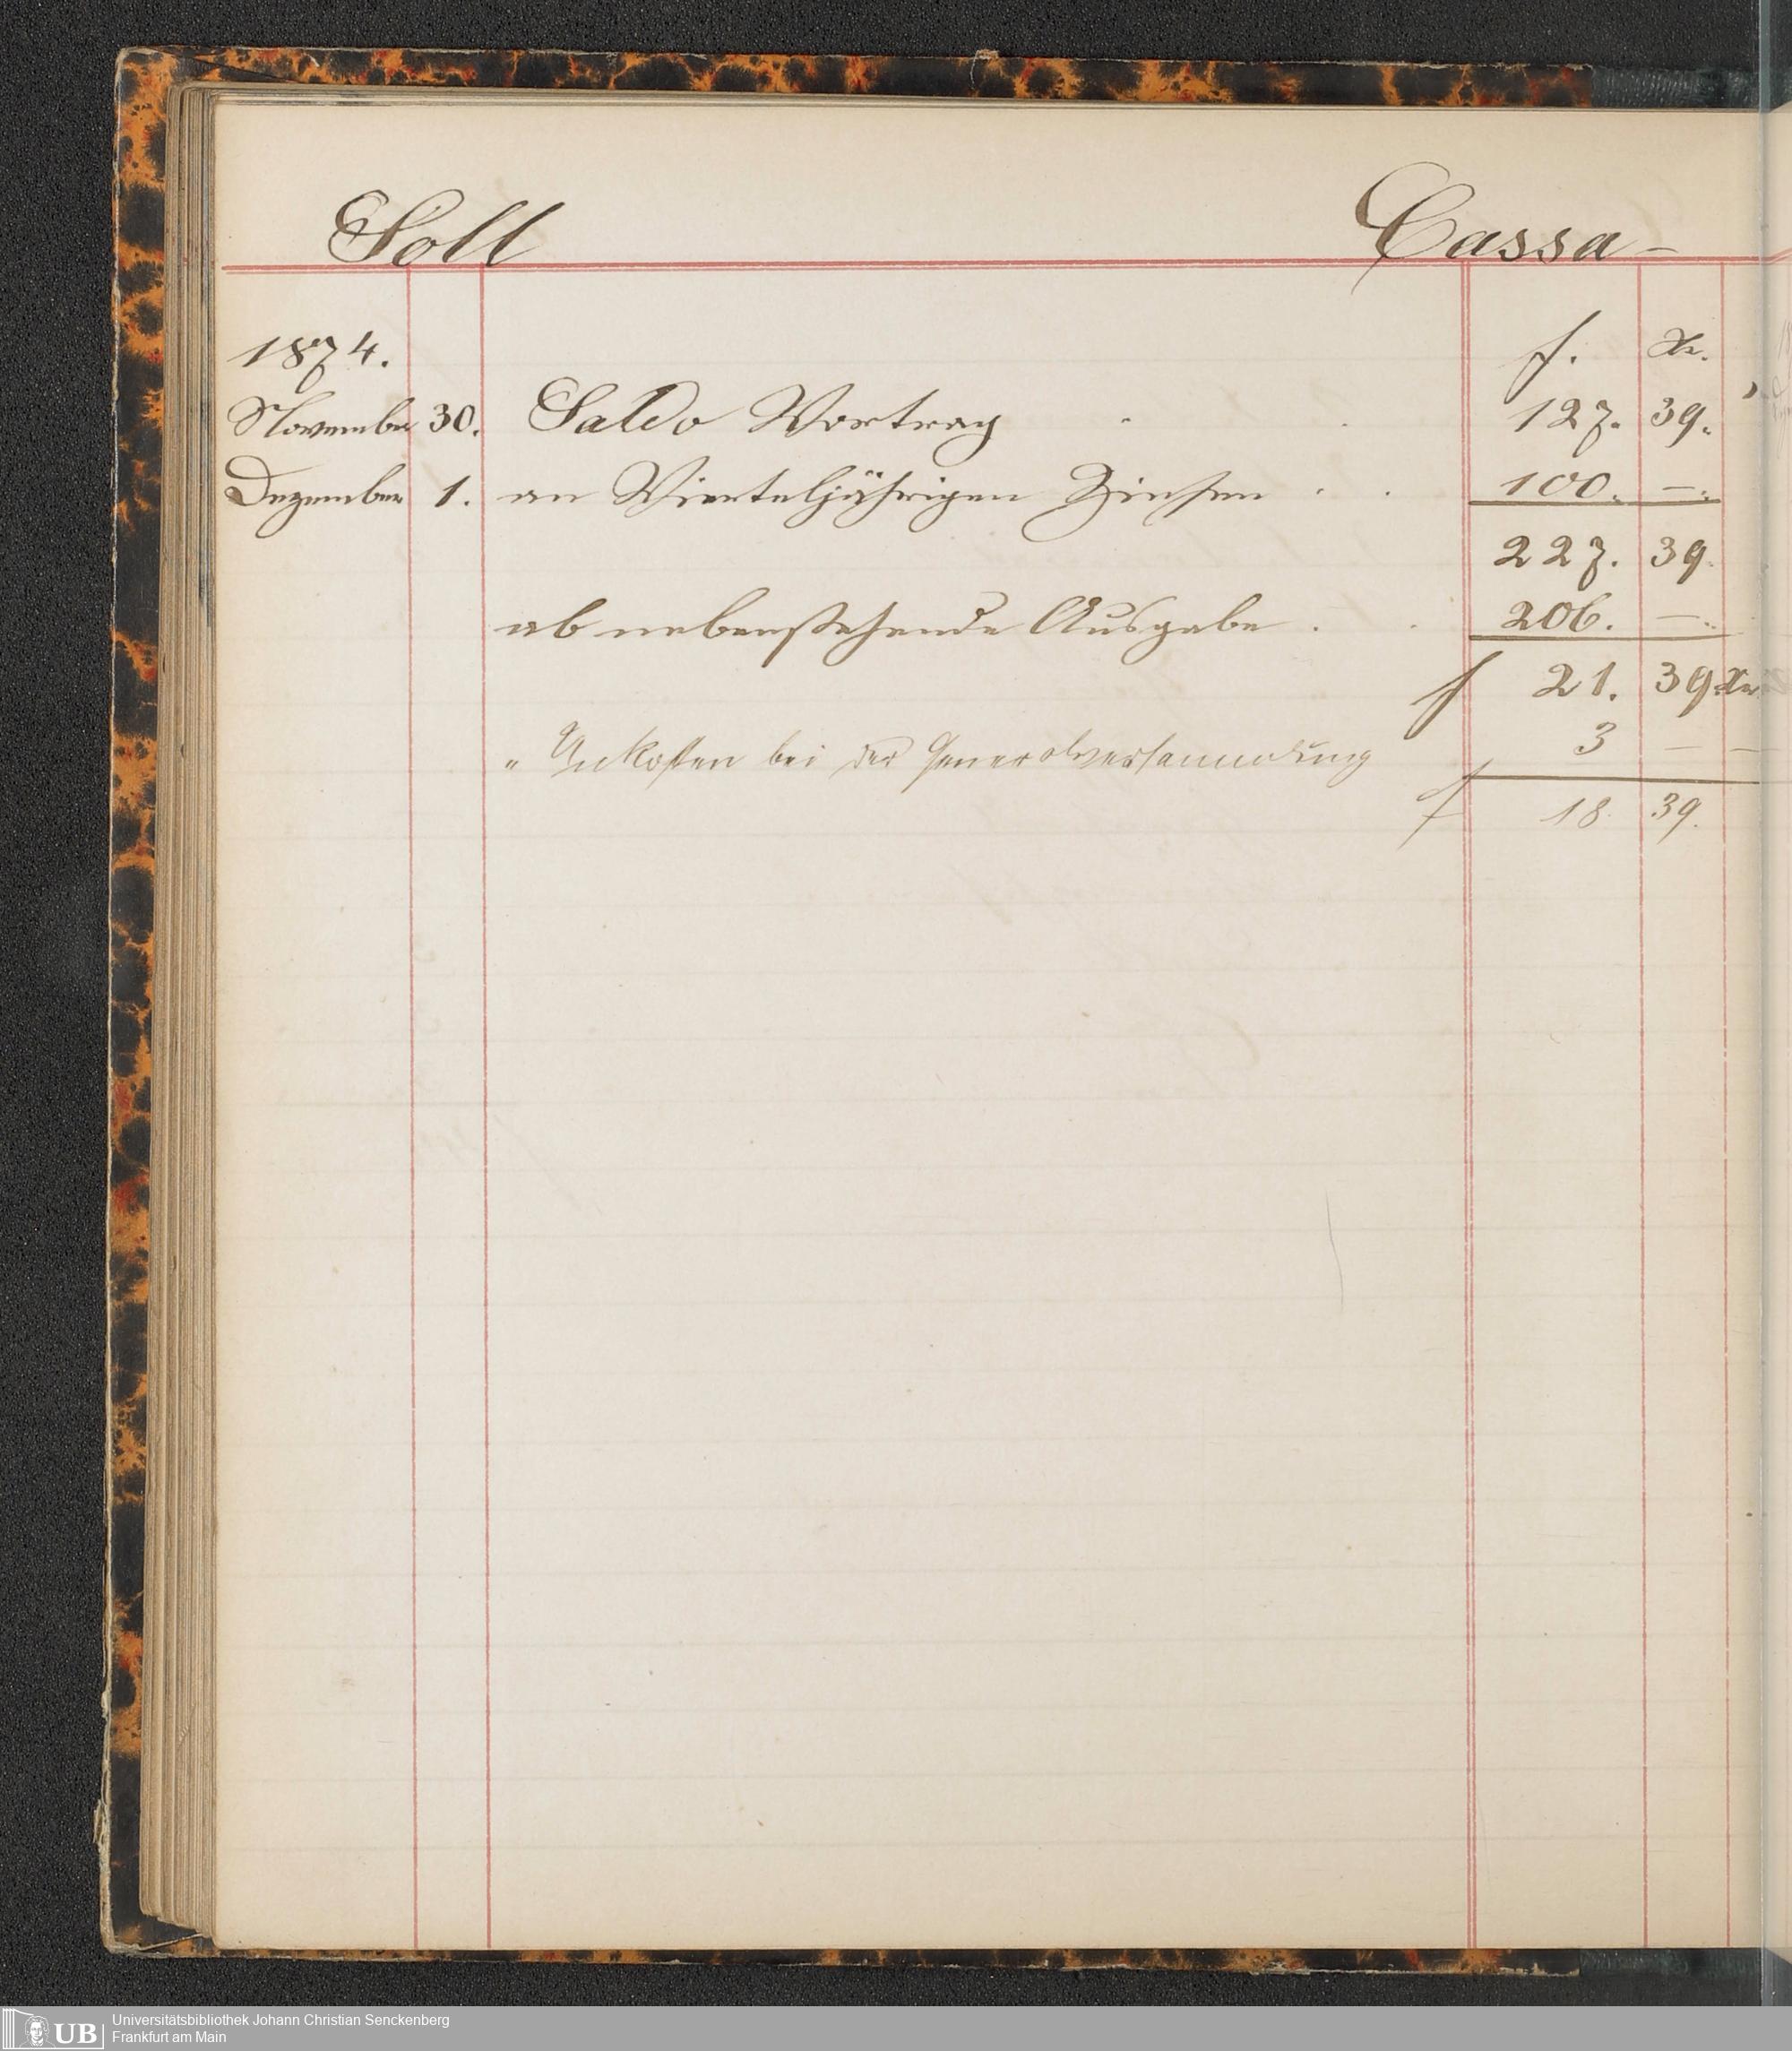 Soll Cassa-
1874. f. Xr.
November 30. Saldo Vortrag . . 127. 39.
Dezember 1. an Vierteljährigen Zinsen . . 100. —.
227. 39.
ab nebenstehende Ausgabe . . 206. —.
f 21. 39 Xr.
" Unkosten bei der Generalversammlung 3 — —
f 18. 39.
UB Universitätsbibliothek Johann Christian Senckenberg
Frankfurt am Main